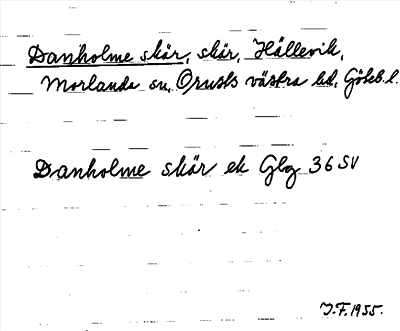 Danholme skär, skär, Hällevik,
Morlanda sn, Orusts västra hd, Göteb. l.
Danholme skär ek Gbg 36 SV
J.F. 1955.